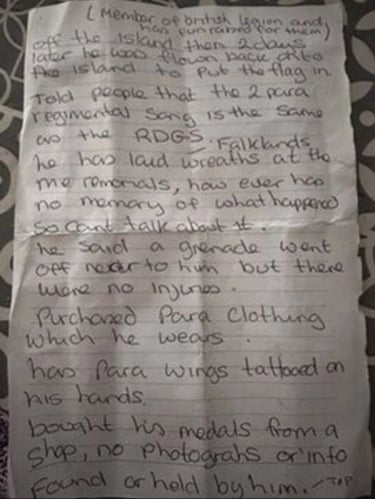 (Member of british legion and
has fun raised for them)
off the island then 2 days
later he was flown back onto
the island to put the flag in
Told people that the 2 para
regimental song is the same
as the RDGS. Falklands
he has laid wreaths at the
memorials, how ever has
no memory of what happened
so cant talk about it.
he said a grenade went
off near to him but there
were no injuries.
Purchased Para Clothing
which he wears.
has Para wings tattooed on
his hands.
bought his medals from a
shop, no photograhs or info
found or held by him.